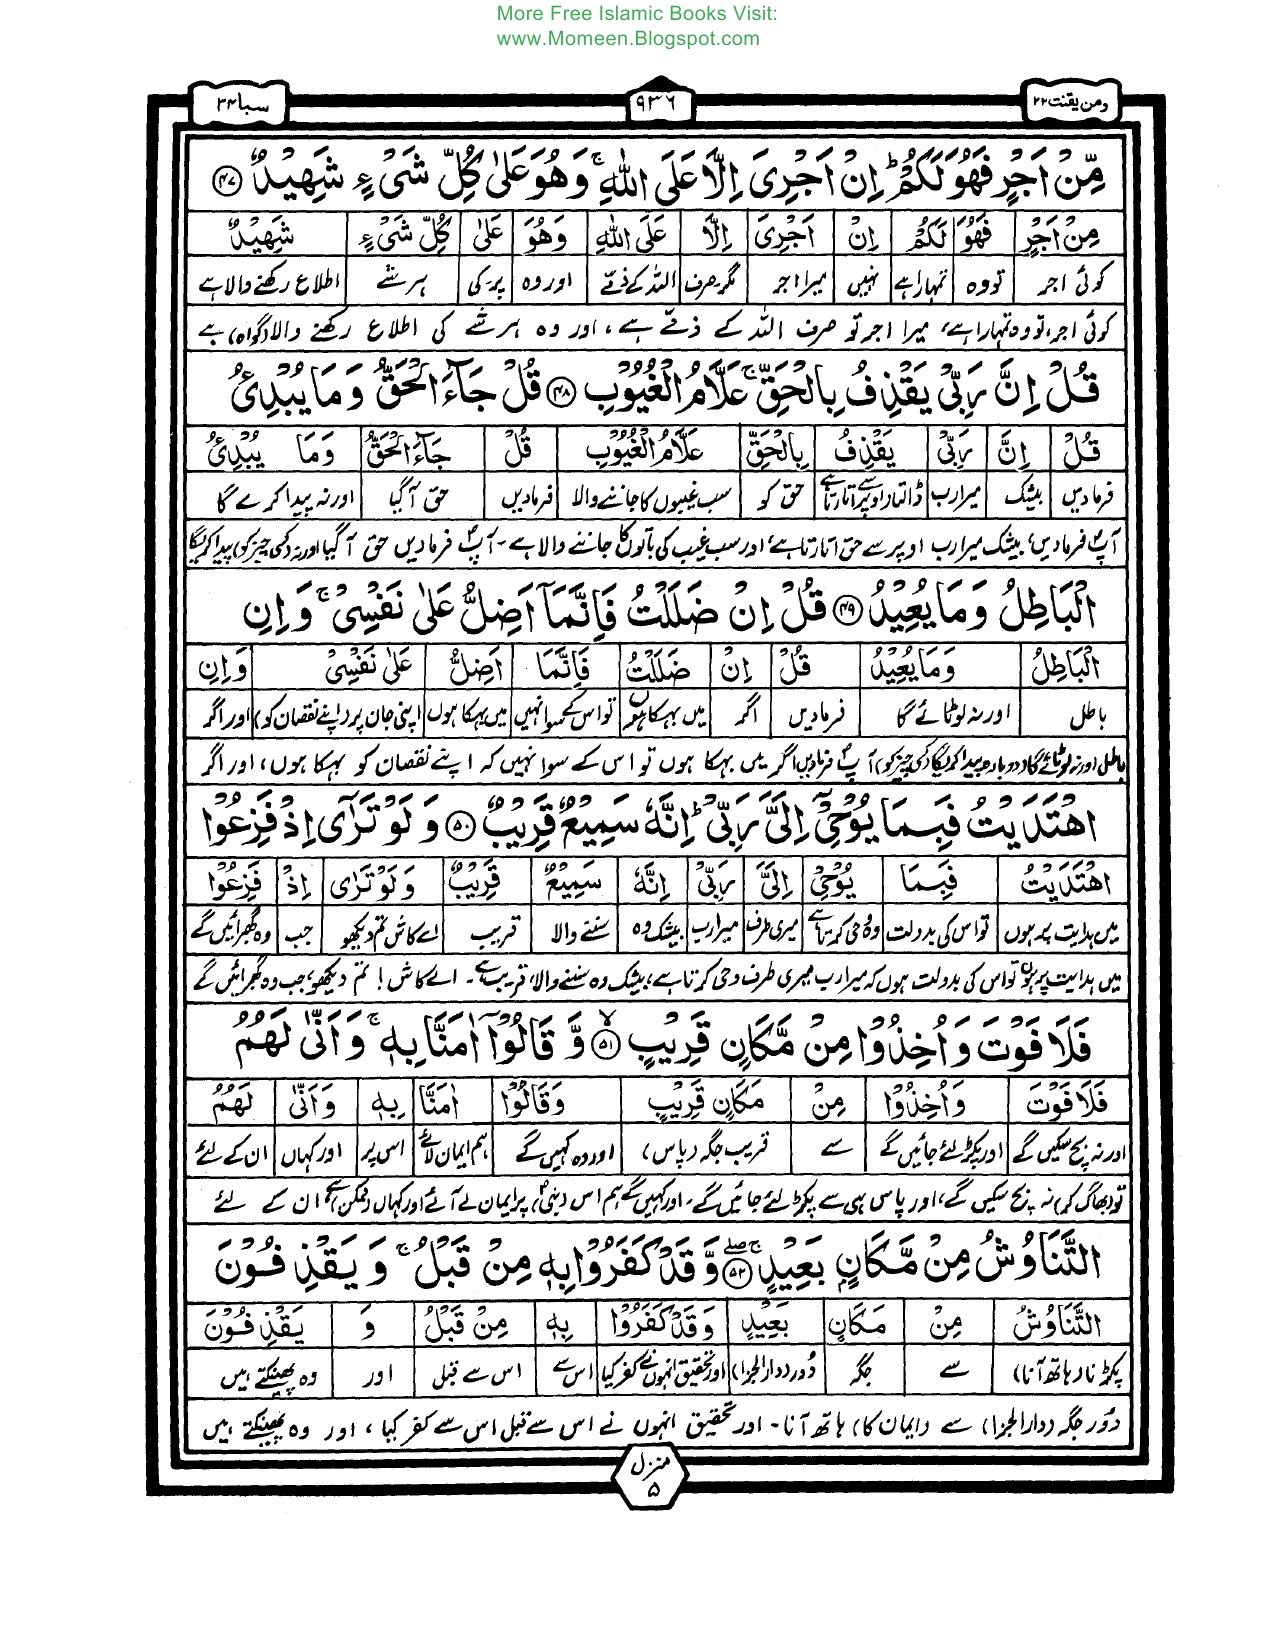 More Free Islamic Books Visit:
www.Momeen.Blogspot.com
ومن يقنت ٢٢
٩٣٦
سبا ٣٤
مِّنْ اَجْرٍ فَهُوَ لَكُمْ ؕ اِنْ اَجْرِیَ اِلَّا عَلَی اللّٰهِ ۚ وَهُوَ عَلٰی كُلِّ شَیْءٍ شَهِیْدٌ ﴿۴۷﴾
مِنْ اَجْرٍ فَهُوَ لَكُمْ اِنْ اَجْرِیَ اِلَّا عَلَی اللّٰهِ وَهُوَ عَلٰی كُلِّ شَیْءٍ شَهِیْدٌ
کوئی اجر تو وہ تمہارا ہے نہیں میرا اجر مگر صرف اللہ کے ذمّے اور وہ پر۔کی ہر شے اطلاع رکھنے والا ہے
کوئی اجر، تو وہ تمہارا ہے، میرا اجر تو صرف اللہ کے ذمّے ہے، اور وہ ہر شے کی اطلاع رکھنے والا (گواہ) ہے
قُلْ اِنَّ رَبِّیْ یَقْذِفُ بِالْحَقِّ ۚ عَلَّامُ الْغُیُوْبِ ﴿۴۸﴾ قُلْ جَآءَ الْحَقُّ وَمَا یُبْدِئُ
قُلْ اِنَّ رَبِّیْ یَقْذِفُ بِالْحَقِّ عَلَّامُ الْغُیُوْبِ قُلْ جَآءَ الْحَقُّ وَمَا یُبْدِئُ
فرما دیں بیشک میرا رب ڈالتا (اوپر سے اتارتا) ہے حق کو سب غیبوں کا جاننے والا فرما دیں حق آگیا اور نہ پیدا کرے گا
آپؐ فرما دیں، بیشک میرا رب اوپر سے حق اتارتا ہے، اور سب غیب کی باتوں کا جاننے والا ہے۔ آپؐ فرما دیں حق آگیا اور نہ (کسی چیز کو) پیدا کریگا
الْبَاطِلُ وَمَا یُعِیْدُ ﴿۴۹﴾ قُلْ اِنْ ضَلَلْتُ فَاِنَّمَاۤ اَضِلُّ عَلٰی نَفْسِیْ ۚ وَاِنِ
الْبَاطِلُ وَمَا یُعِیْدُ قُلْ اِنْ ضَلَلْتُ فَاِنَّمَا اَضِلُّ عَلٰی نَفْسِیْ وَاِنِ
باطل اور نہ لوٹائے گا فرما دیں اگر میں بہکا ہوں تو اس کے سوا نہیں میں بہکا ہوں اپنی جان پر (اپنے نقصان کو) اور اگر
باطل اور نہ لوٹائے گا (دوبارہ پیدا کریگا کسی چیز کو) آپؐ فرما دیں اگر میں بہکا ہوں تو اس کے سوا نہیں کہ اپنے نقصان کو بہکا ہوں، اور اگر
اهْتَدَیْتُ فَبِمَا یُوْحِیْۤ اِلَیَّ رَبِّیْ ؕ اِنَّهٗ سَمِیْعٌ قَرِیْبٌ ﴿۵۰﴾ وَلَوْ تَرٰۤی اِذْ فَزِعُوْا
اهْتَدَیْتُ فَبِمَا یُوْحِیْ اِلَیَّ رَبِّیْ اِنَّهٗ سَمِیْعٌ قَرِیْبٌ وَلَوْ تَرٰی اِذْ فَزِعُوْا
میں ہدایت پر ہوں تو اس کی بدولت وہ وحی کرتا ہے میری طرف میرا رب بیشک وہ سننے والا قریب اے کاش تم دیکھو جب وہ گھبرائیں گے
میں ہدایت پر ہوں تو اس کی بدولت ہوں کہ میرا رب میری طرف وحی کرتا ہے، بیشک وہ سننے والا، قریب ہے۔ اے کاش! تم دیکھو، جب وہ گھبرائیں گے
فَلَا فَوْتَ وَاُخِذُوْا مِنْ مَّكَانٍ قَرِیْبٍ ﴿۵۱﴾ۙ وَّقَالُوْۤا اٰمَنَّا بِهٖ ۚ وَاَنّٰی لَهُمُ
فَلَا فَوْتَ وَاُخِذُوْا مِنْ مَكَانٍ قَرِیْبٍ وَقَالُوْا اٰمَنَّا بِهٖ وَاَنّٰی لَهُمُ
اور نہ بچ سکیں گے اور پکڑ لئے جائیں گے سے قریب جگہ (پاس) اور وہ کہیں گے ہم ایمان لائے اس پر اور کہاں ان کے لئے
تو (بھاگ کر) نہ بچ سکیں گے، اور پاس ہی سے پکڑ لئے جائیں گے۔ اور کہیں گے ہم اس (نبیؐ) پر ایمان لے آئے اور کہاں (ممکن) ہے ان کے لئے
التَّنَاوُشُ مِنْ مَّكَانٍۭ بَعِیْدٍ ﴿۵۲﴾ۚۖ وَّقَدْ كَفَرُوْا بِهٖ مِنْ قَبْلُ ۚ وَیَقْذِفُوْنَ
التَّنَاوُشُ مِنْ مَكَانٍ بَعِیْدٍ وَقَدْ كَفَرُوْا بِهٖ مِنْ قَبْلُ وَ یَقْذِفُوْنَ
پکڑنا (ہاتھ آنا) سے جگہ دُور (دار الجزا) اور تحقیق انہوں نے کفر کیا اس سے اس سے قبل اور وہ پھینکتے ہیں
دُور جگہ (دار الجزا) سے (ایمان کا) ہاتھ آنا۔ اور تحقیق انہوں نے اس سے قبل اس سے کفر کیا، اور وہ پھینکتے ہیں
منزل
۵